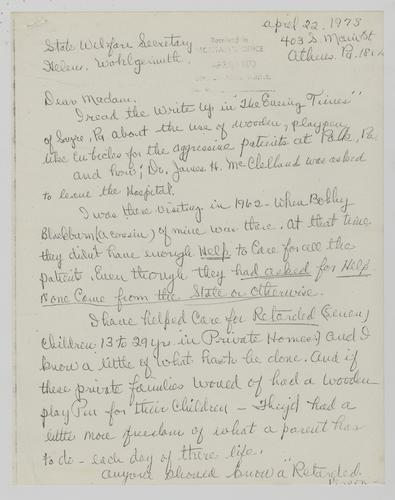 april 22, 1973
403 S. Main St
Athens. Pa. 188
State Welfare Secretary
Helene, Wohlgemuth.
Received in
SECRETARY'S OFFICE
Dear Madam.
I read the Write up in "The Evening Times"
of Sayre, Pa about the use of wooden, playpen
like cubicles for the aggressive patients at Polk, Pa
and how; Dr. James H. McClelland was asked
to leave the Hospital.
I was there visiting in 1962 - when Bobby
Blackburn (a cousin) of mine was there. At that time
they didn't have enough Help to Care for all the
patient. Even though they had asked for Help
none Come from the State or otherwise.
I have helped Care for Retarded
Children 13 to 29 yrs in Private Homes) and I
know a little of what has to be done. And if
these private families woued of had a wooden
play Pen for their Children - They'd had a
little more freedom of what a parent has
to do - each day of there life.
anyone should know a "Retarded
Person -